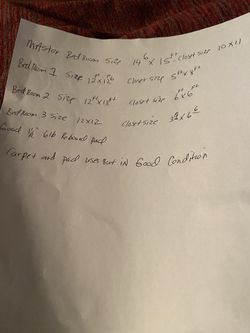 Mastor BedRoom Size 14⁶ x 15¹¹ closet size 10x11
BedRoom 1 Size 12¹¹x12⁶ closet size 5¹¹x8¹¹
BedRoom 2 Size 12¹¹x12¹¹ closet size 6¹¹x6¹¹
BedRoom 3 size 12x12 closet size x6⁶
Good ½" 6lb Rebond pad
Carpet and pad used But in Good Condition